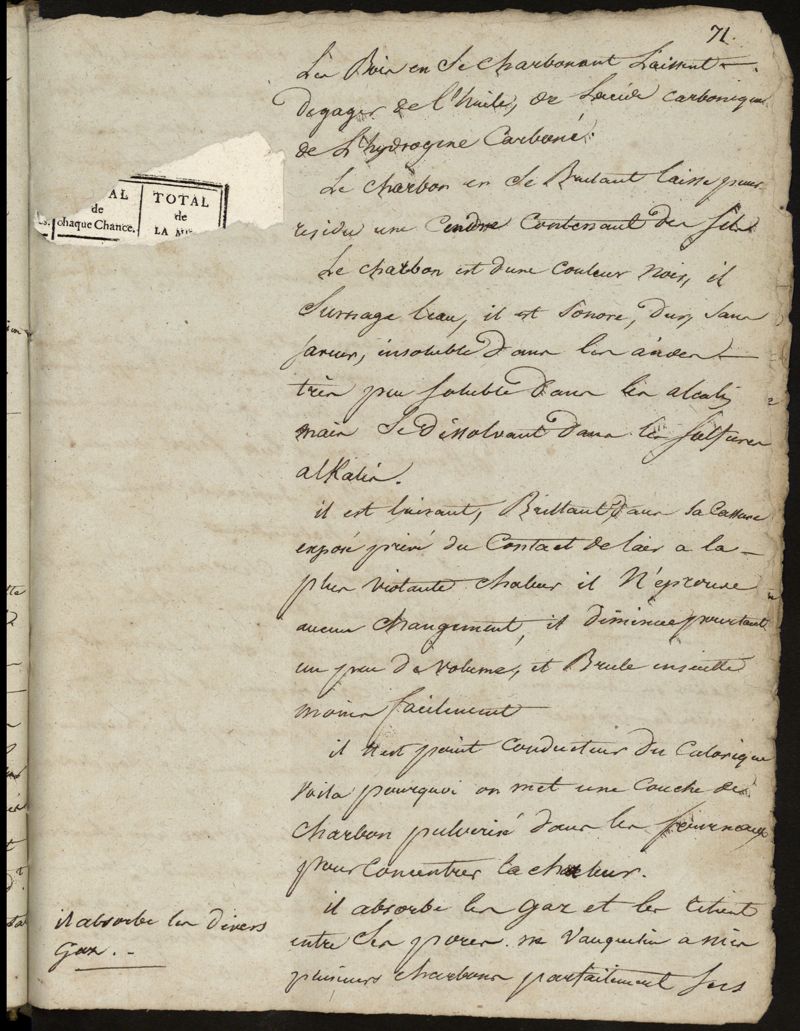 71.
Les Bois en se charbonant Laissent
degager de l'huile, de Lacide carbonique
de L'hydrogene Carboné.
Le charbon en se Brulant laisse pour
residu une Cendre Contenant des sels
Le charbon est d'une couleur noir, il
surnage l'eau, il est sonore, dur, sans
saveur, insoluble dans les acides
très peu soluble dans les alcalis
mais se dissolvant dans les sulfures
alkalis.
il est luisant, Brillant dans sa Cassure
exposé privé du Contact de lair a la
plus violante chaleur il N'éprouve
aucun changement, il diminue pourtant
un peu de volume, et Brule ensuitte
moins facilement
il n'est point conducteur du Calorique
voila pourquoi on met une couche de
charbon pulverisé dans les fourneaux
pour concentrer la chaleur.
il absorbe les gaz et les retient
entre ses pores. mr Vauquelin a mis
plusieurs charbons parfaitement secs
il absorbe les divers
Gaz. -
AL
de
chaque Chance.
TOTAL
de